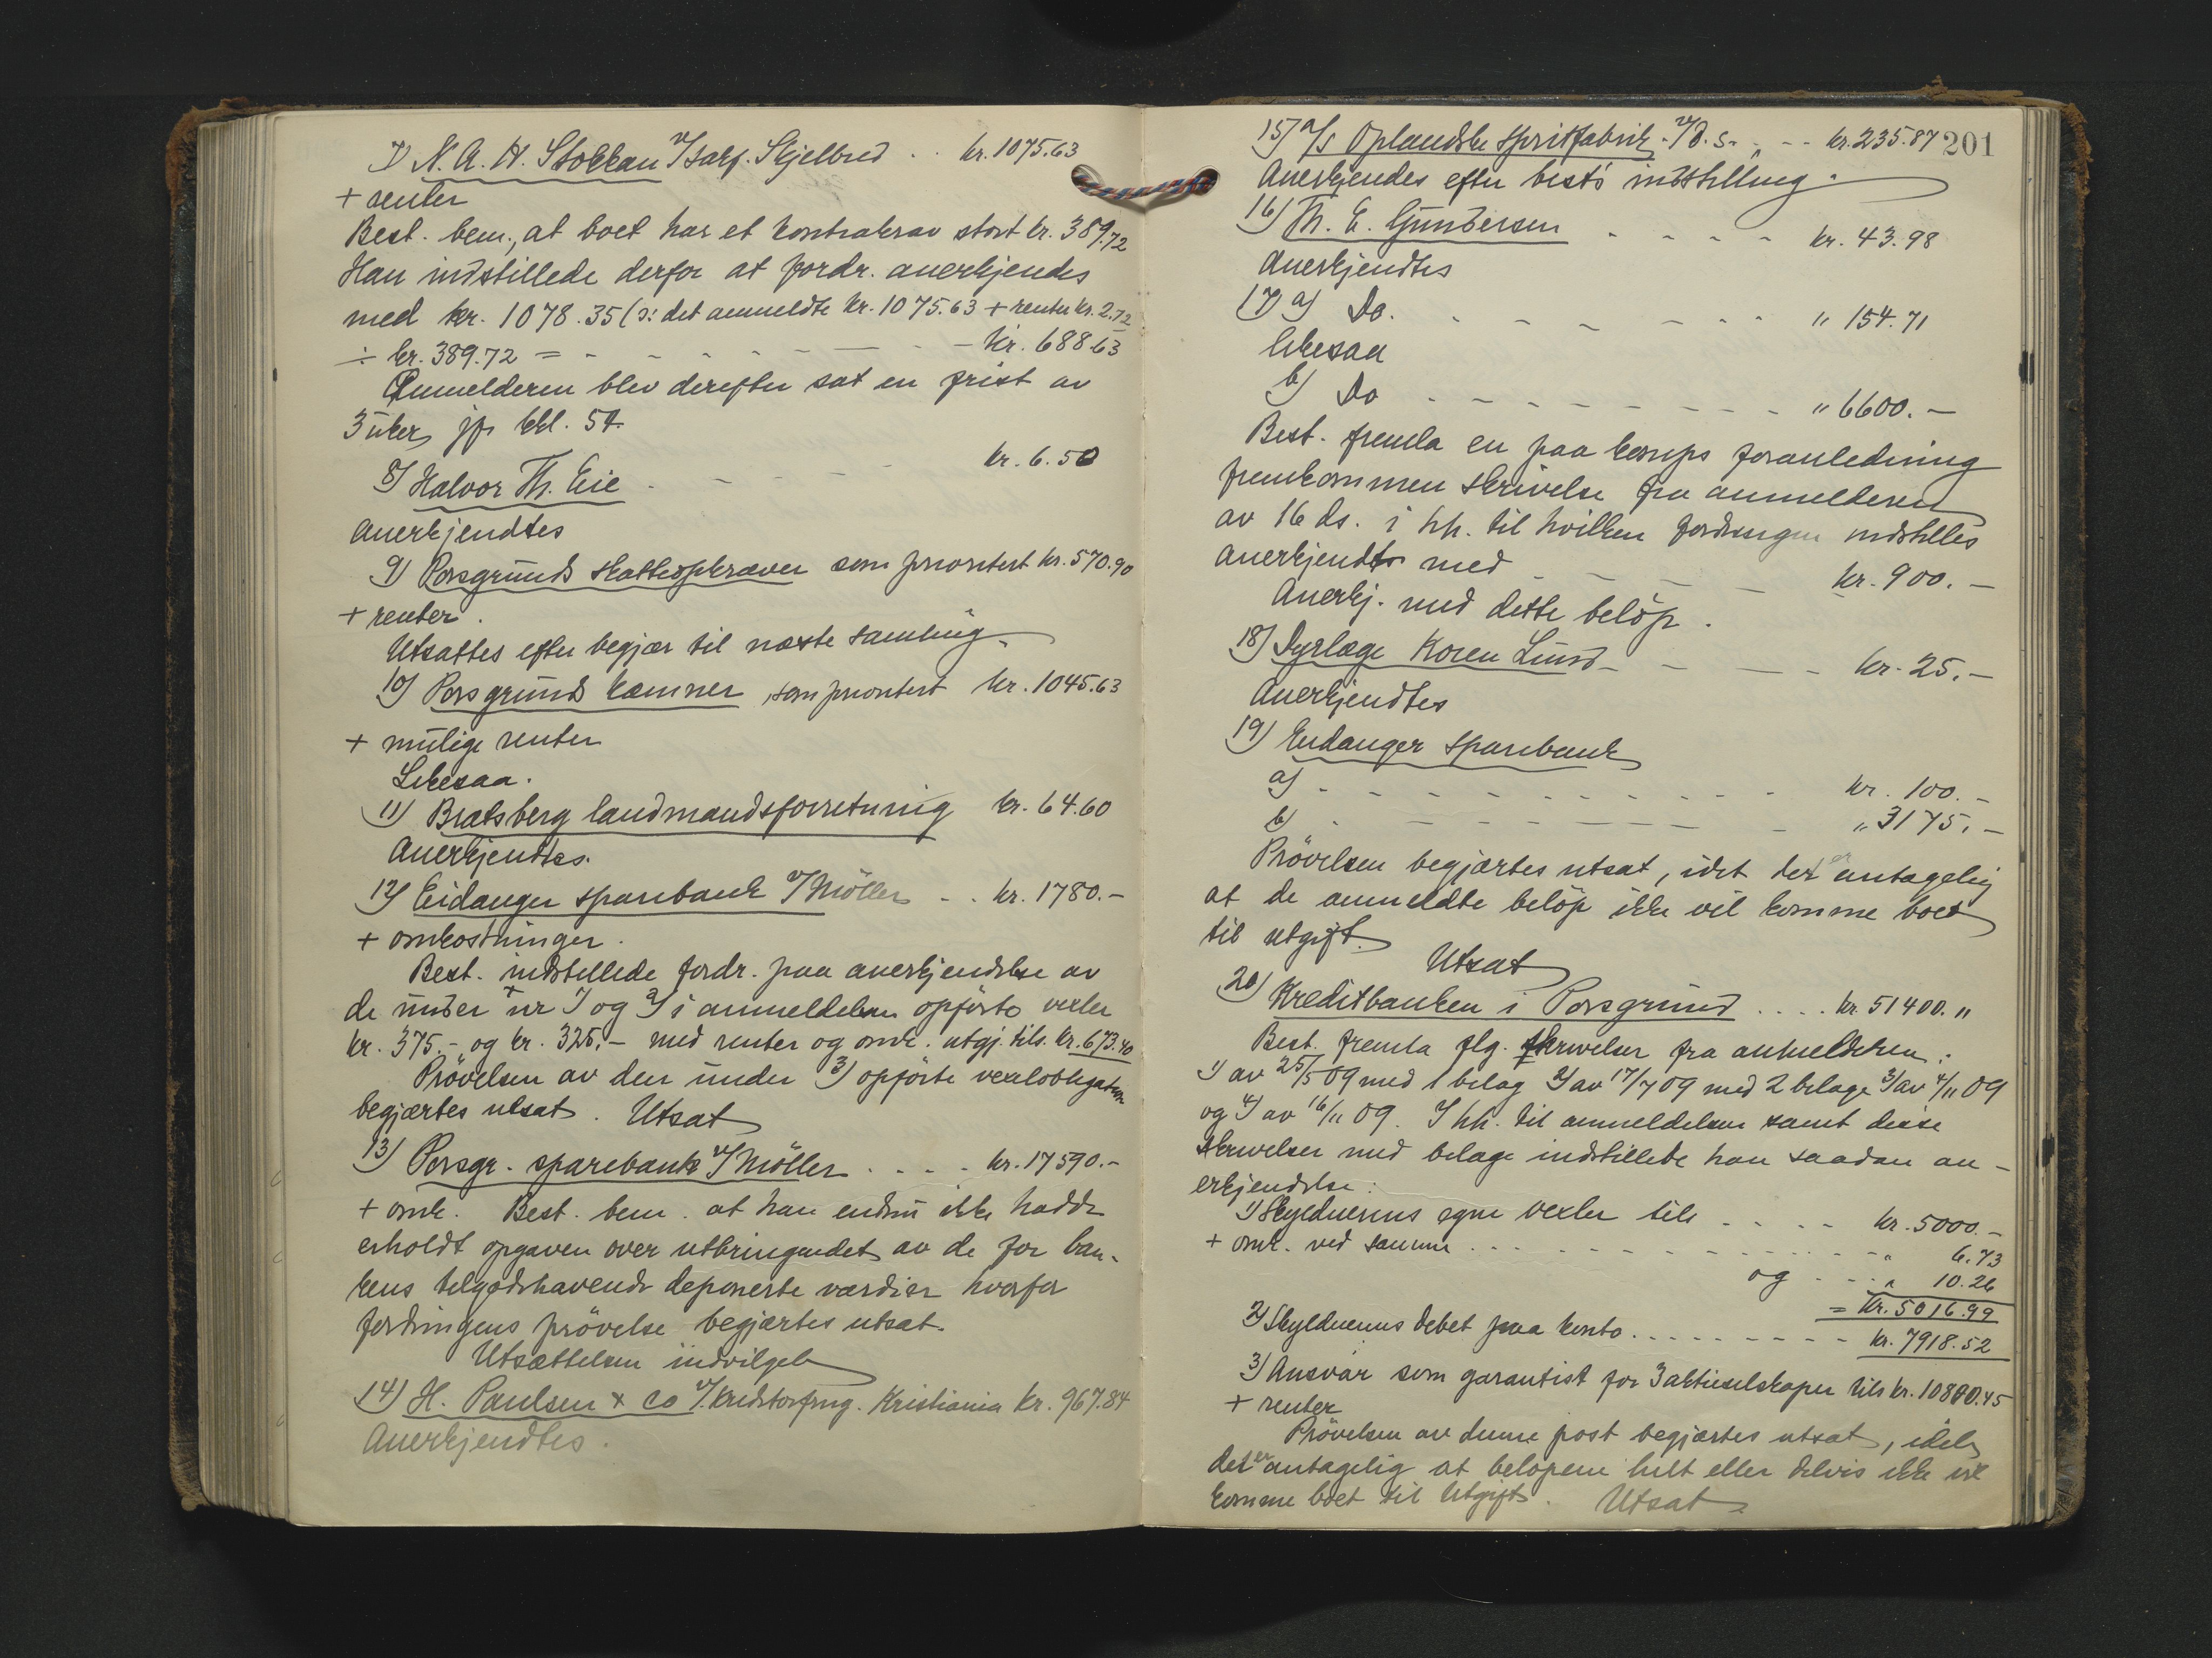 7) N. A. H. Stokkan v/ sakf. Skjelbred . . kr. 1075.63
+ renter
Best. bem., at boet har et kontrakrav stort kr. 389.72
Han indstillede derfor at fordr. anerkjendes
med kr. 1078.35 (ɔ: det anmeldte kr. 1075.63 + renter kr. 2.72
÷ kr. 389.72 = - - - - - - - kr. 688.63
Anmelderen blev derefter sat en frist av
3 uker, jfr kkl. 54.
8) Halvor Th. Eie - - - - kr. 6.50
Anerkjendtes
9) Porsgrunds skatteopkræver som prioritert kr. 570.90
+ renter.
Utsattes efter begjær til næste samling.
10) Porsgrunds kæmner, som prioritert kr. 1045.63
+ mulige renter
Likesaa.
11) Bratsberg landmandsforretning kr. 64.60
Anerkjendtes.
12) Eidanger sparebank v/ Möller - . kr. 1780.-
+ omkostninger.
Best. indstillede fordr. paa anerkjendelse av
de under nr 1) og 2) i anmeldelsen opförte vexler
kr. 375.- og kr. 325.- med renter og omk. utgj. tils. kr. 673.40
Prövelsen av den under 3) opförte vexelobligation
begjærtes utsat. Utsat
13) Porsgr. sparebank v/ Möller . . - . kr. 17590.-
+ omk. Best. bem. at han endnu ikke hadde
erholdt opgaven over utbringendet av de for ban-
kens tilgodehavende deponerte værdier hvorfor
fordringens prövelse begjærtes utsat.
Utsættelsen indvilget
14) H. Paulsen & Co v/ kreditorfrng. Kristiania kr. 967.84
Anerkjendtes.
201
15) A/s Oplandske spritfabrik - v/ d. s. - - - kr. 235.87
Anerkjendes efter best's indstilling.
16) Th. E. Gundersen - - - - kr. 43.98
Anerkjendtes
17) a) Do. - - - - - - " 154.71
Likesaa
b) Do - - - - - - - - " 6600.-
Best. fremla en paa foranledning
fremkommen skrivelse fra anmelderen
av 16 ds. i hh. til hvilken fordringen indstilles
anerkjendt med - - - - kr. 900.-
Anerkj. med dette belöp.
18) Dyrlæge Koren Lund - - - - kr. 25.-
Anerkjendtes
19) Eidanger sparebank
a) - - - - - - - - - - kr. 100.-
b) - - - - - - - - " 3175.-
Prövelsen begjærtes utsat, idet det er antagelig
at de anmeldte belöp ikke vil komme boet
til utgift.
Utsat
20) Kreditbanken i Porsgrund . . . . kr. 51400."
Best. fremla flg. skrivelser fra anmelderen:
1) av 25/5 09 med 1 belag 2) av 17/7 09 med 2 belage 3) av 4/11 09
og 4) av 16/11 09. I hh. til anmeldelsen samt disse
skrivelser med belage indstillede han saadan an-
erkjendelse:
1) Skyldnerens egne vexler tils - . . - kr. 5000.-
+ omk. ved samme . . . - - - - - - - " 6.73
og - - - " 10.26
= kr. 5016.99
2) Skyldnerens debet paa konto . - - - - - - - kr. 7918.52
3) Ansvar som garantist for 3 aktieselskaper tils kr. 10880.45
+ renter
Prövelsen av denne post begjærtes utsat, idet
det er antagelig at belöpene helt eller delvis ikke vil
komme boet til utgift. Utsat